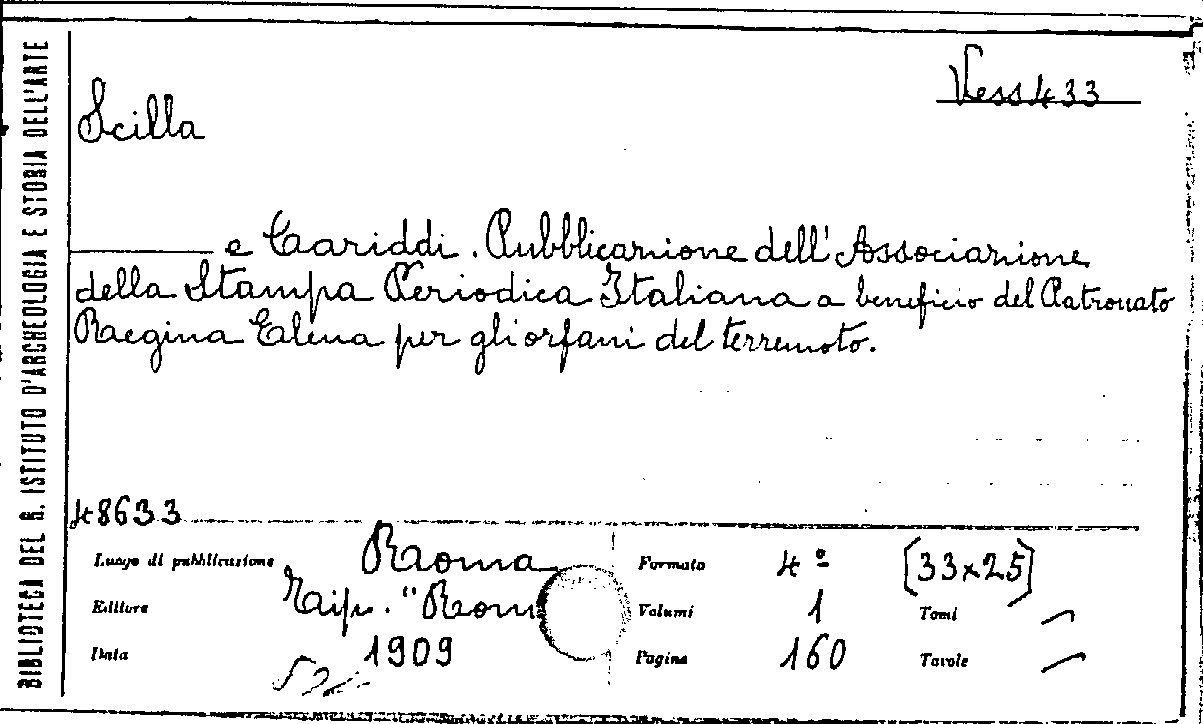 BIBLIOTECA DEL R. ISTITUTO D'ARCHEOLOGIA E STORIA DELL'ARTE
Vess 433
Scilla
e Cariddi. Pubblicazione dell'Associazione
della Stampa Periodica Italiana a beneficio del Patronato
Raegina Elena per gli orfani del terremoto.
48633
Luogo di pubblicazione Roma Formato 4º (33x25)
Editore Tip. "Rom Volumi 1 Tomi
Data 1909 Pagine 160 Tavole